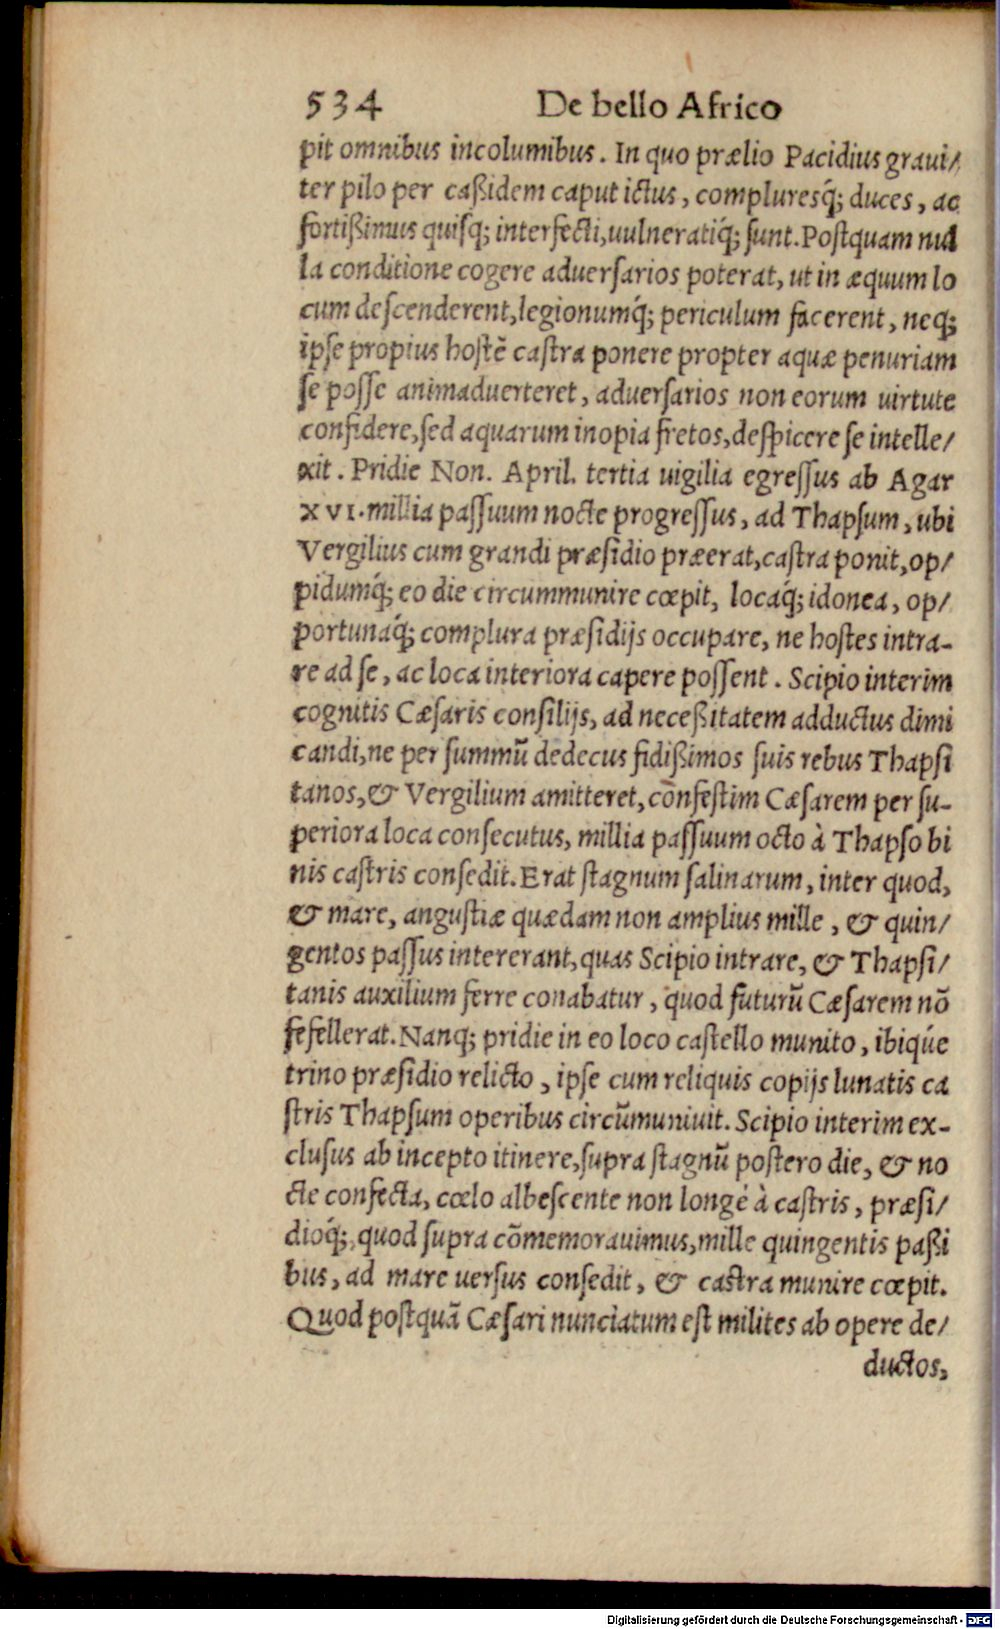 534 De bello Africo
pit omnibus incolumibus. In quo prælio Pacidius graui/
ter pilo per caßidem caput ictus, compluresq́; duces, ac
fortißimus quiſq; interfecti, uulneratiq́; ſunt. Poſtquam nul
la conditione cogere aduerſarios poterat, ut in æquum lo
cum deſcenderent, legionumq́; periculum facerent, neq;
ipſe propius hoſtē caſtra ponere propter aquæ penuriam
ſe poſſe animaduerteret, aduerſarios non eorum uirtute
confidere, ſed aquarum inopia fretos, deſpicere ſe intelle/
xit. Pridie Non. April. tertia uigilia egreſſus ab Agar
XVI. millia paſſuum nocte progreſſus, ad Thapſum, ubi
Vergilius cum grandi præſidio præerat, caſtra ponit, op/
pidumq́; eo die circummunire cœpit, locaq́; idonea, op/
portunaq́; complura præſidijs occupare, ne hoſtes intra-
re ad ſe, ac loca interiora capere poſſent. Scipio interim
cognitis Cæſaris conſilijs, ad neceßitatem adductus dimi
candi, ne per ſummū dedecus fidißimos ſuis rebus Thapſi
tanos, & Vergilium amitteret, cōnfeſtim Cæſarem per ſu-
periora loca conſecutus, millia paſſuum octo à Thapſo bi
nis caſtris conſedit. Erat ſtagnum ſalinarum, inter quod,
& mare, anguſtiæ quædam non amplius mille, & quin/
gentos paſſus intererant, quas Scipio intrare, & Thapſi/
tanis auxilium ferre conabatur, quod futurū Cæſarem nō
fefellerat. Nanq; pridie in eo loco caſtello munito, ibiqúe
trino præſidio relicto, ipſe cum reliquis copijs lunatis ca
ſtris Thapſum operibus circūmuniuit. Scipio interim ex-
cluſus ab incepto itinere, ſupra ſtagnū poſtero die, & no
cte confecta, cœlo albeſcente non longè à caſtris, præſi/
dioq́;, quod ſupra cōmemorauimus, mille quingentis paßi
bus, ad mare uerſus conſedit, & caſtra munire cœpit.
Quod poſtquā Cæſari nunciatum eſt milites ab opere de/
ductos,
Digitalisierung gefördert durch die Deutsche Forschungsgemeinschaft - DFG